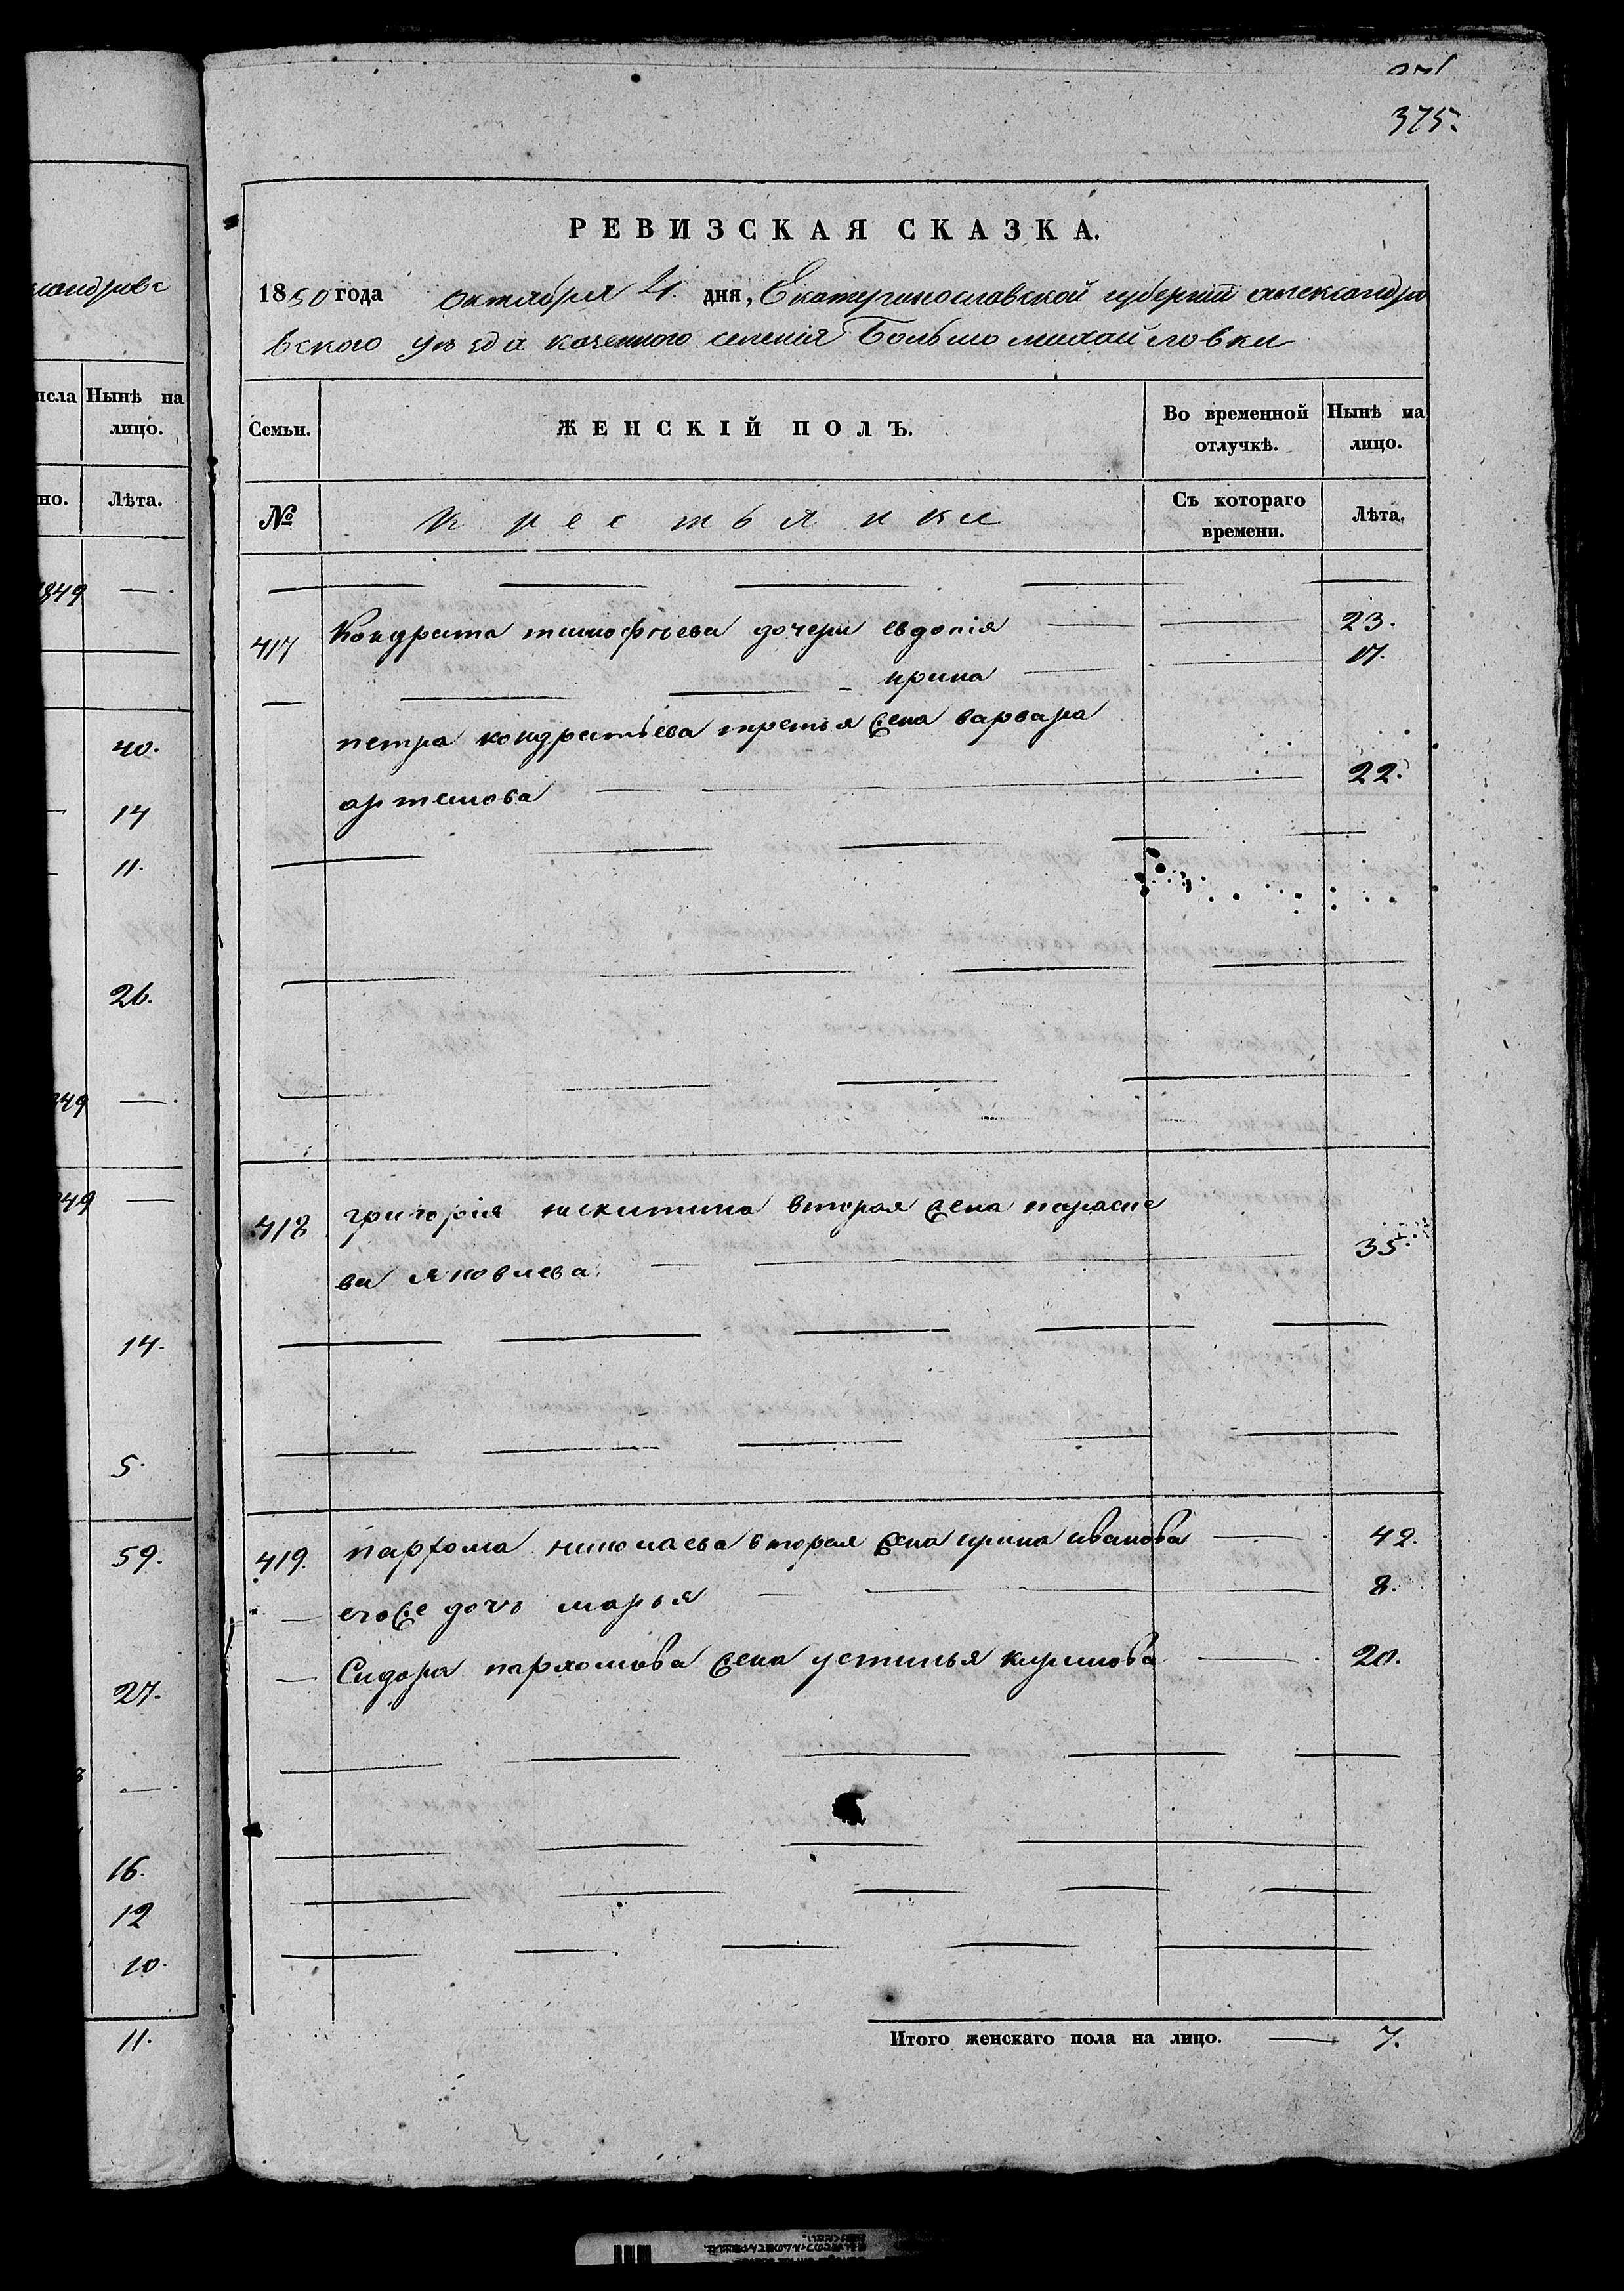 375.
РЕВИЗСКАЯ СКАЗКА.
1850 года октября 21. дня, Екатеринославской губерніи александро
вского уѣзда казенного селенія Большомихайловки
Семьи.
ЖЕНСКІЙ ПОЛЪ.
Во временной отлучкѣ.
Нынѣ на лицо.
№
крестьянки
Съ котораго времени.
Лѣта.
417 Кондрата тимофѣева дочери евдокія 23.
ирина 17.
петра кондратьева третья жена варвара
артемова 22.
418 григорія никитина вторая жена параске
ва яковлева. 35.
419. пархома николаева вторая жена ирина иванова 42.
егоже дочь марья 8.
Сидора пархомова жена устинья климова 20.
Итого женскаго пола на лицо. 7.
Нынѣ на
лицо.
но. Лѣта.
1849
40.
14
11.
26.
49
49
14.
5.
59.
27.
16.
12
10.
11.